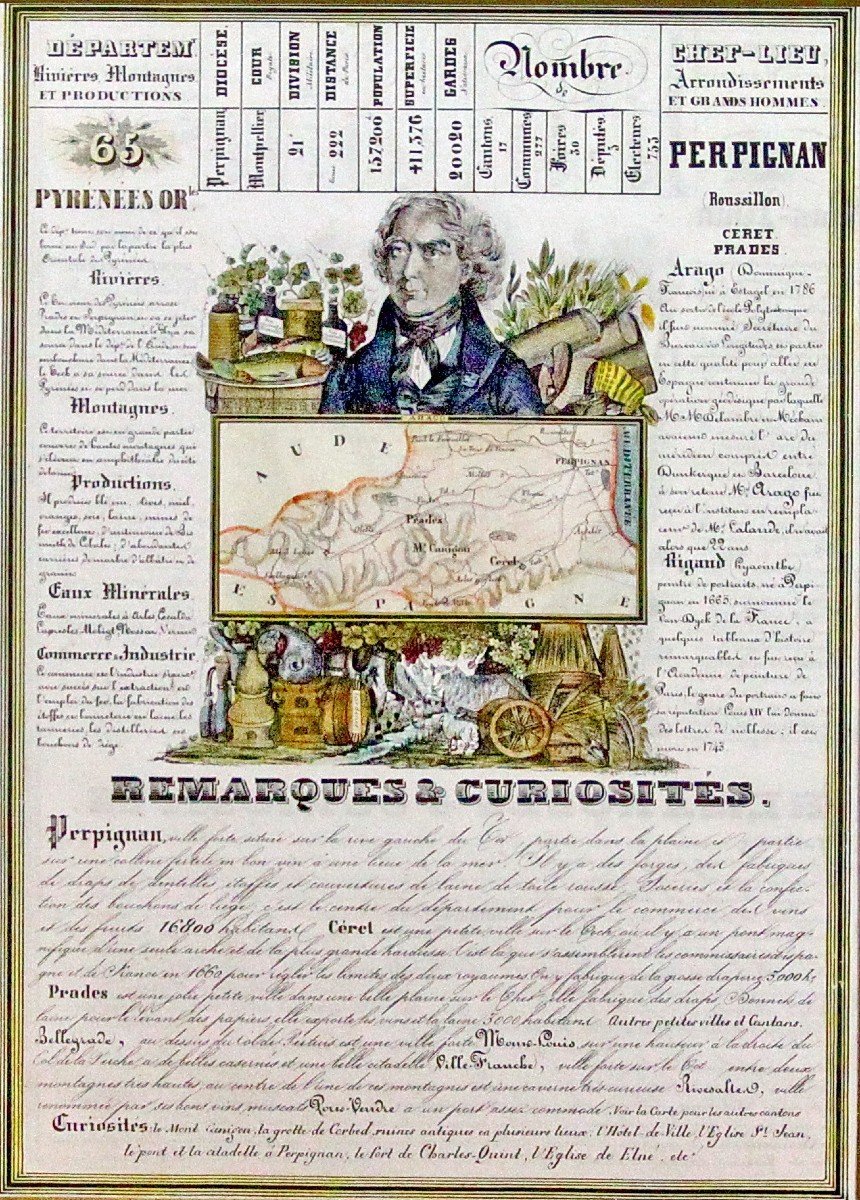 DÉPARTEMt
Rivières, Montagnes
ET PRODUCTIONS
DIOCESE.
Perpignan
COUR
Royale
Montpellier
DIVISION
Militaire
21e
DISTANCE
de Paris
222
POPULATION
157200
SUPERFICIE
411,376
GARDES
Nationaux
20020
Nombre
de
Cantons
17
Communes
277
Foires
30
Députés
3
Electeurs
733
CHEF-LIEU,
Arrondissements
ET GRANDS HOMMES
65
PYRÉNÉES ORles
Ce dépt tire son nom de ce qu'il est
formé au Sud par la partie la plus
Orientale des Pyrénées
Rivières.
dans la Méditerranée
source dans le dépt de l'Aude
embouchure dans la Méditerranée
le Tech a sa source dans les
Pyrénées et se perd dans la mer
Montagnes.
Ce territoire est en grande partie
couvert de hautes montagnes qui
s'élèvent en amphithéâtre
Productions.
Il produit blé vin, olives, miel,
oranges, soie, laine, mines de
fer excellent, d'antimoine de Bis
muth de Cobalt, d'abondantes
carrières de marbre d'albâtre et de
granit
Eaux Minérales.
Eaux minérales à Arles Escalda
Commerce & Industrie
avec succès sur l'extraction et
l'emploi du fer, la fabrication des
étoffes et bonneterie en laine les
tanneries les distilleries et
bouchons de liège
PERPIGNAN
(Roussillon).
CERET
PRADES.
Arago (Dominique-
François) né à Estagel en 1786
Au sortir de l'école Polytechnique
il fut nommé Secrétaire du
Bureau des Longitudes et partit
en cette qualité pour aller en
Espagne continuer la grande
opération géodésique par laquelle
M.M. Delambre et Méchain
avaient mesuré l'arc du
méridien compris entre
Dunkerque et Barcelone
à son retour Mr Arago fut
reçu à l'institut en rempla-
cemt de Mr Lalande, il n'avait
alors que 22 ans
Rigaud Hyacinthe)
peintre de portraits, né à Perpi
gnan en 1663, surnommé le
Van-Dyck de la France, a
quelques tableaux d'histoire
remarquables et fut reçu à
l'Académie de peinture de
Paris, le genre du portrait a faire
sa réputation Louis XIV lui donna
des lettres de noblesse; il est
mort en 1743.
ARAGO
AUDE
PERPIGNAN
MÉDITERRANÉE
Prades
Mt Canigou
Ceret
ESPAGNE
REMARQUES & CURIOSITÉS.
Perpignan, ville forte située sur la rive gauche du Tet, partie dans la plaine et partie
sur une colline fertile en bon vin à une lieue de la mer. Il y a des forges, des fabriques
de draps de dentelles, étoffes et couvertures de laine de toile rousse, Poteries et la confec-
tion des bouchons de liège, c'est le centre du département pour le commerce des vins
et des fruits 16800 habitans. Céret est une petite ville sur le Tech où il y a un pont mag-
nifique d'une seule arche et de la plus grande hardiesse. C'est là que s'assemblèrent les commissaires d'Espa-
gne et de France en 1660 pour régler les limites des deux royaumes. On y fabrique de la grosse draperie 3,000 h.
Prades est une jolie petite ville dans une belle plaine sur le Thet elle fabrique des draps Bonnets de
laine pour le levant des papiers, elle exporte les vins et la laine 3000 habitans. Autres petites villes et Cantons.
Bellegrade, au dessus du Col de Pertuis est une ville forte Mont-Louis, sur une hauteur à la droite du
Col de la Perche a de belles casernes et une belle citadelle Ville-Franche, ville forte sur le Tet entre deux
montagnes très hautes, au centre de l'une de ces montagnes est une caverne très curieuse Rivesaltes, ville
renommée par ses bons vins muscats Port-Vendre a un port assez commode. Voir la Carte pour les autres cantons
Curiosités: le Mont Canigou, la grotte de Corbed, ruines antiques en plusieurs lieux, l'Hôtel-de-Ville, l'Eglise St Jean,
le pont et la citadelle à Perpignan, le fort de Charles-Quint, l'Eglise de Elne, etc